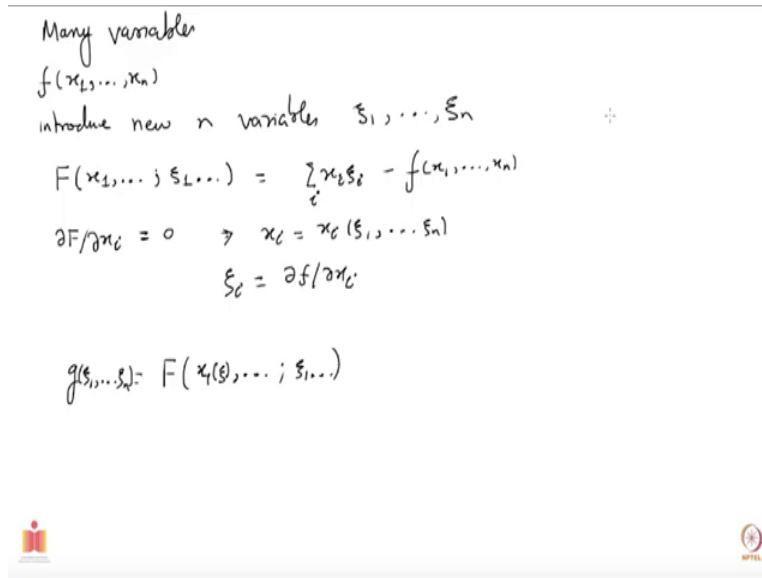 Many variables
f(x₁,...,xₙ)
introduce new n variables ξ₁,...,ξₙ
F(x₁,...; ξ₁...) = Σᵢ xᵢξᵢ - f(x₁,...,xₙ)
∂F/∂xᵢ = 0 ⇒ xᵢ = xᵢ(ξ₁,...ξₙ)
ξᵢ = ∂f/∂xᵢ
g(ξ₁,...ξₙ) = F(x₁(ξ),...; ξ₁...)
NPTEL